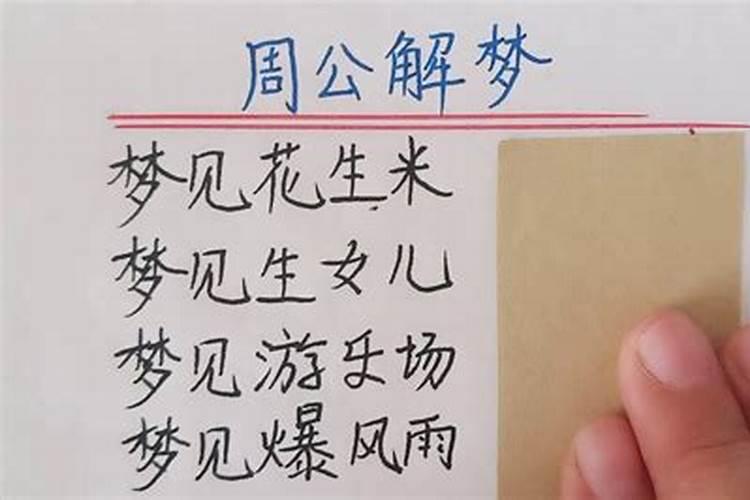 周公解梦
梦见花生米
梦见生女儿
梦见游乐场
梦见爆风雨